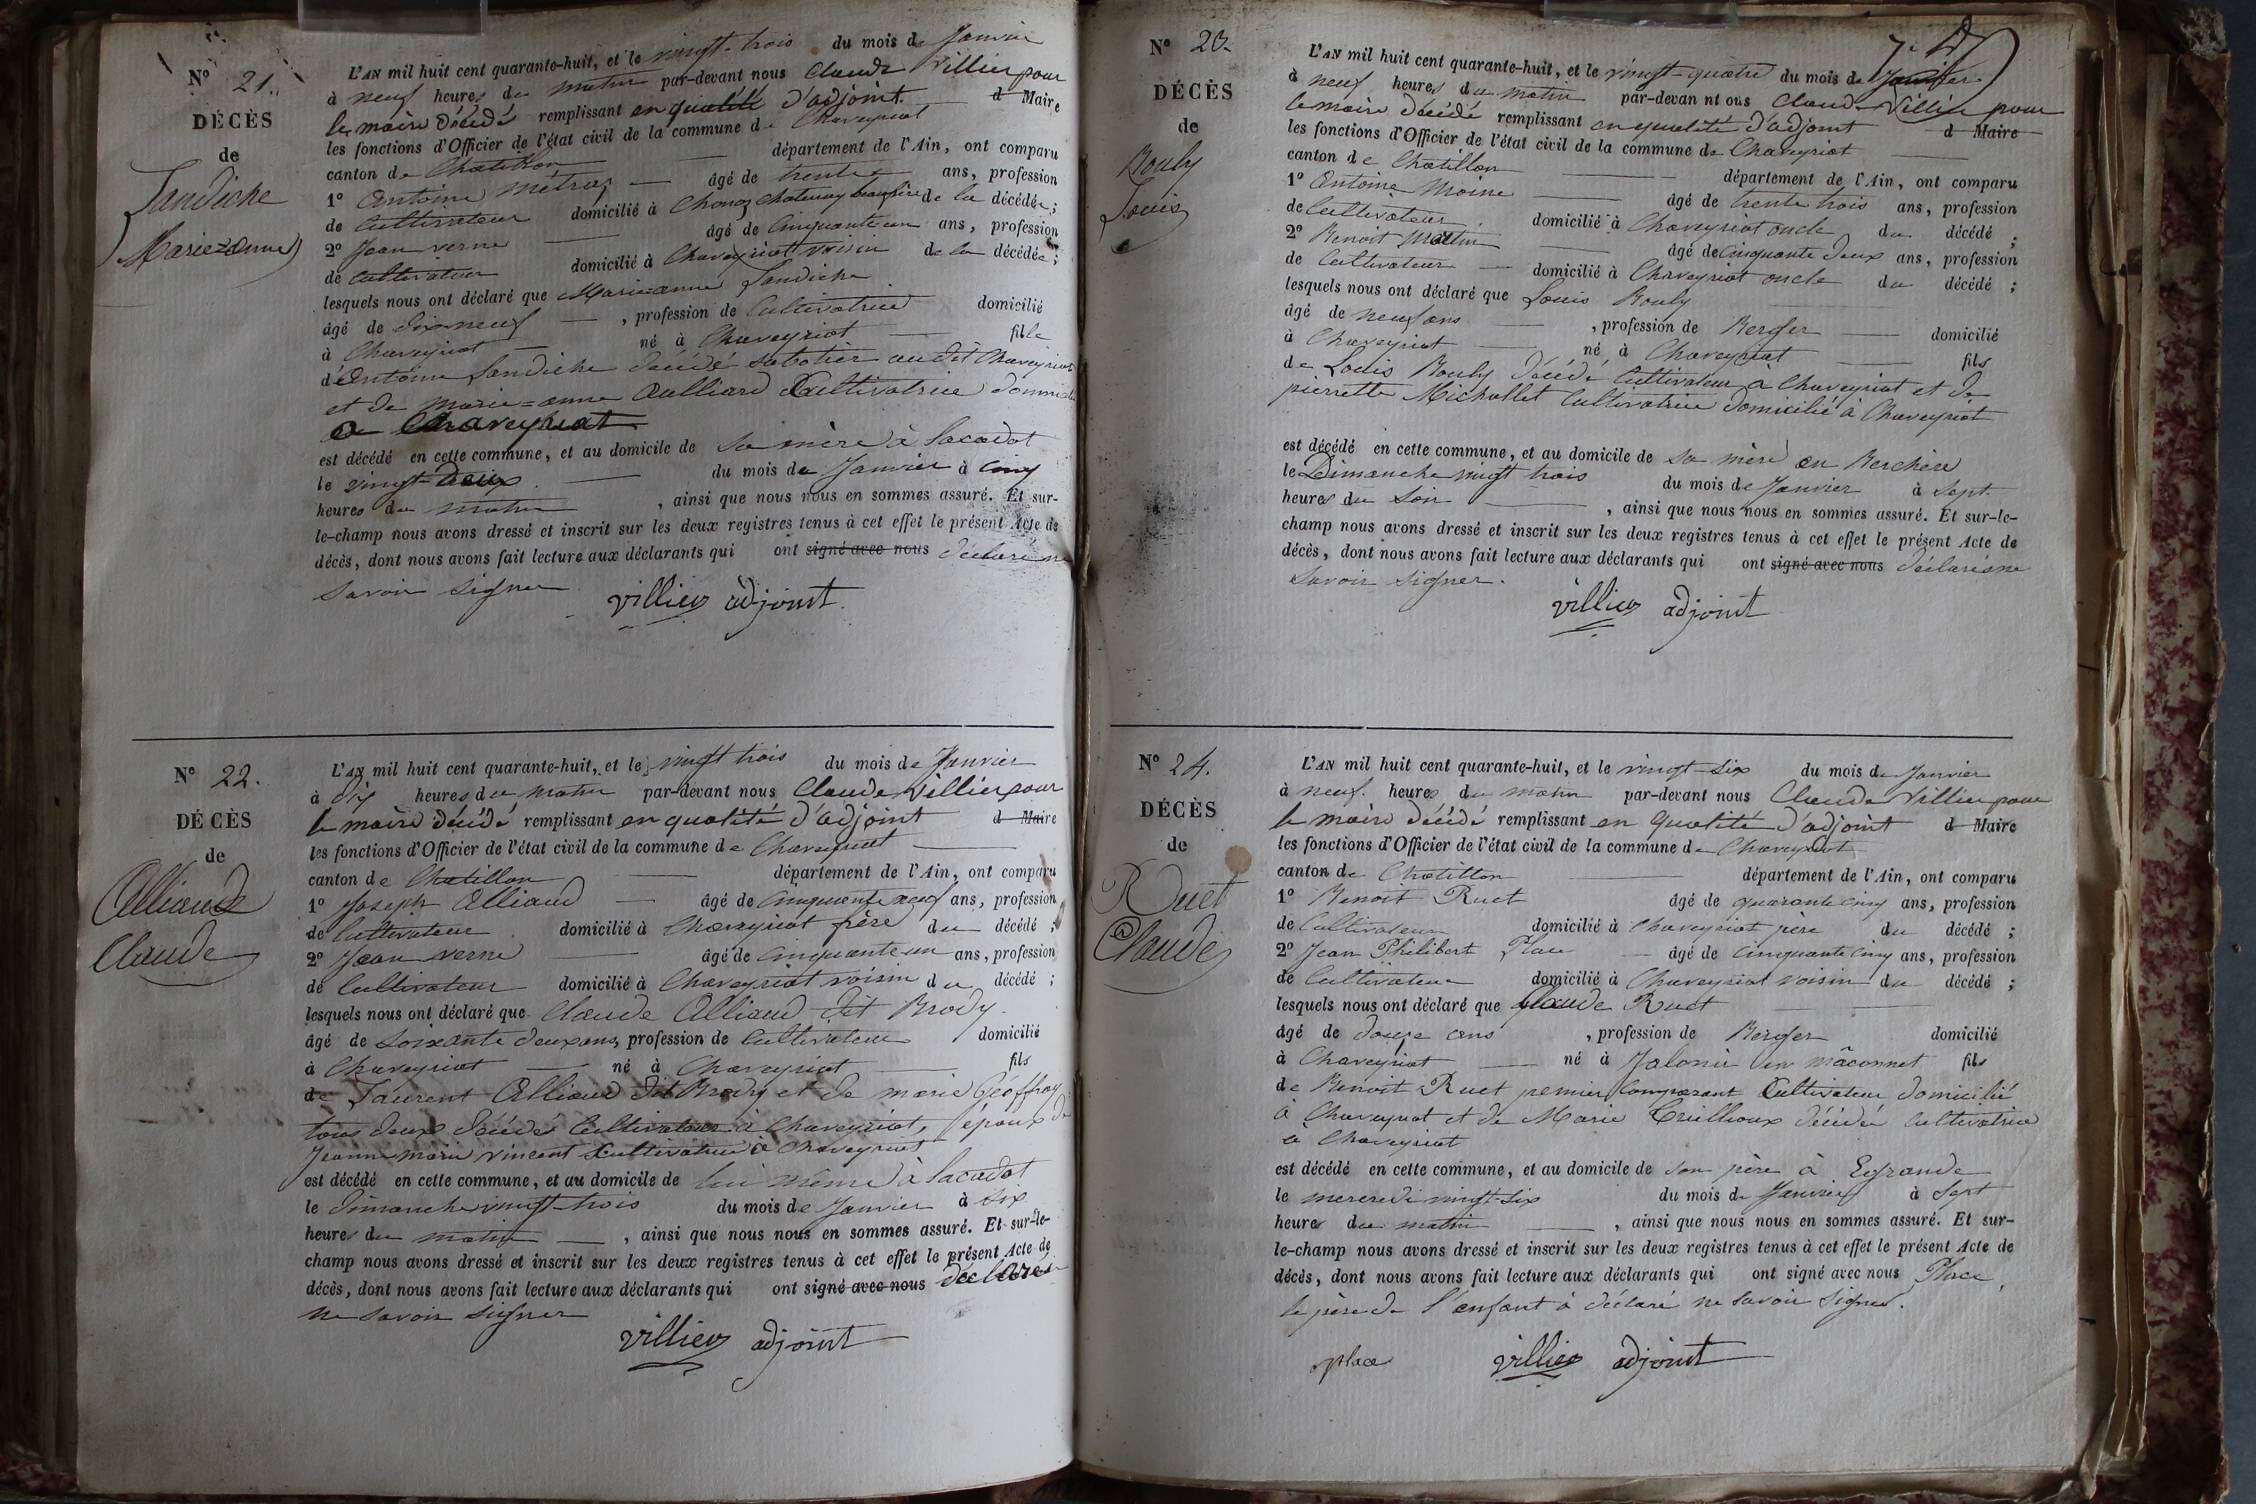 N° 21.
DÉCÈS
de
Landiche
Marie=anne
L'AN mil huit cent quarante-huit, et le vingt-trois du mois de Janvier
à neuf heures du matin par-devant nous Claude Villier pour
le maire décédé remplissant en qualité d'adjoint d Maire
les fonctions d'Officier de l'état civil de la commune de Chaveyriat
canton de Chatillon département de l'Ain, ont comparu
1° Antoine Métras âgé de trente ans, profession
de Cultivateur domicilié à Chanoz Chatenay beaufrère de la décédée;
2° Jean verne âgé de Cinquante un ans, profession
de Cultivateur domicilié à Chaveyriat voisin de la décédée;
lesquels nous ont déclaré que Marie=anne Landiche
âgé de dix neuf , profession de Cultivatrice domicilié
à Chaveyriat né à Chaveyriat fille
d'Antoine Landiche décédé sabotier audit Chaveyriat
et de marie=anne Aulliard Cultivatrice
à Chaveyriat
est décédé en cette commune, et au domicile de sa mère à Lacadot
le vingt-deux du mois de Janvier à cinq
heures du matin , ainsi que nous nous en sommes assuré. Et sur-
le-champ nous avons dressé et inscrit sur les deux registres tenus à cet effet le présent Acte de
décès, dont nous avons fait lecture aux déclarants qui ont signé avec nous déclaré ne
savoir signer
Villier adjoint
N° 22.
DÉCÈS
de
Alliaud
Claude
L'AN mil huit cent quarante-huit, et le vingt trois du mois de Janvier
à dix heures du matin par-devant nous Claude Villier pour
le maire décédé remplissant en qualité d'adjoint d Maire
les fonctions d'Officier de l'état civil de la commune de Chaveyriat
canton de Chatillon département de l'Ain, ont comparu
1° Joseph Alliaud âgé de Cinquante neuf ans, profession
de Cultivateur domicilié à Chaveyriat frère du décédé;
2° Jean verne âgé de Cinquante un ans, profession
de Cultivateur domicilié à Chaveyriat voisin du décédé;
lesquels nous ont déclaré que Claude Alliaud dit Brody
âgé de soixante deux ans, profession de Cultivateur domicilié
à Chaveyriat né à Chaveyriat fils
de Laurent Alliaud dit Brody et de marie Geoffray
tous deux décédés Cultivateurs à Chaveyriat, époux de
Jeanne marie vincent Cultivatrice à Chaveyriat
est décédé en cette commune, et au domicile de lui même à Lacadot
le dimanche vingt-trois du mois de Janvier à six
heures du matin , ainsi que nous nous en sommes assuré. Et sur-le-
champ nous avons dressé et inscrit sur les deux registres tenus à cet effet le présent Acte de
décès, dont nous avons fait lecture aux déclarants qui ont signé avec nous déclaré
ne savoir signer
Villier adjoint
N° 23.
DÉCÈS
de
Bouly
Louis
L'AN mil huit cent quarante-huit, et le vingt-quatre du mois de Janvier
à neuf heures du matin par-devan nt ous Claude Villier pour
le maire décédé remplissant en qualité d'adjoint d Maire
les fonctions d'Officier de l'état civil de la commune de Chaveyriat
canton de Chatillon département de l'Ain, ont comparu
1° Antoine Moine âgé de trente trois ans, profession
de Cultivateur domicilié à Chaveyriat oncle du décédé;
2° Benoit Martin âgé de Cinquante deux ans, profession
de Cultivateur domicilié à Chaveyriat oncle du décédé;
lesquels nous ont déclaré que Louis Bouly
âgé de neuf ans , profession de Berger domicilié
à Chaveyriat né à Chaveyriat fils
de Louis Bouly décédé Cultivateur à Chaveyriat et de
pierrette Michallet Cultivatrice domicilié à Chaveyriat
est décédé en cette commune, et au domicile de sa mère en Berchère
le Dimanche vingt trois du mois de Janvier à sept
heures du soir , ainsi que nous nous en sommes assuré. Et sur-le-
champ nous avons dressé et inscrit sur les deux registres tenus à cet effet le présent Acte de
décès, dont nous avons fait lecture aux déclarants qui ont signé avec nous déclaré ne
savoir signer.
Villier adjoint
N° 24.
DÉCÈS
de
Ruet
Claude
L'AN mil huit cent quarante-huit, et le vingt-six du mois de Janvier
à neuf heures du matin par-devant nous Claude Villier pour
le maire décédé remplissant en qualité d'adjoint d Maire
les fonctions d'Officier de l'état civil de la commune de Chaveyriat
canton de Chatillon département de l'Ain, ont comparu
1° Benoit Ruet âgé de quarante cinq ans, profession
de Cultivateur domicilié à Chaveyriat père du décédé;
2° Jean Philibert Place âgé de Cinquante cinq ans, profession
de Cultivateur domicilié à Chaveyriat voisin du décédé;
lesquels nous ont déclaré que Claude Ruet
âgé de douze ans , profession de Berger domicilié
à Chaveyriat né à Jalonie en mâconnet fils
de Benoit Ruet premier Comparant Cultivateur domicilié
à Chaveyriat et de Marie décédée Cultivatrice
à Chaveyriat
est décédé en cette commune, et au domicile de son père à Egrande
le mercredi vingt-six du mois de Janvier à sept
heures du matin , ainsi que nous nous en sommes assuré. Et sur-
le-champ nous avons dressé et inscrit sur les deux registres tenus à cet effet le présent Acte de
décès, dont nous avons fait lecture aux déclarants qui ont signé avec nous Place
le père de l'enfant à déclaré ne savoir signer.
place Villier adjoint